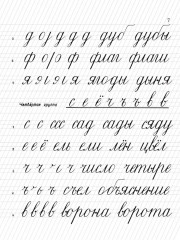 . д о ј д д д дуб дубы
. ф о ф ф флаг флаги
. я я я я ягоды дыня
Четвёртая группа с е ё ч ъ ъ в в
. с с ссс сад сады сяду
. е е ё ем ели лён цвёл
. ч ч ч ч число четыре
. ъ ъ ъ съел объяснение
. в в в в ворона ворота